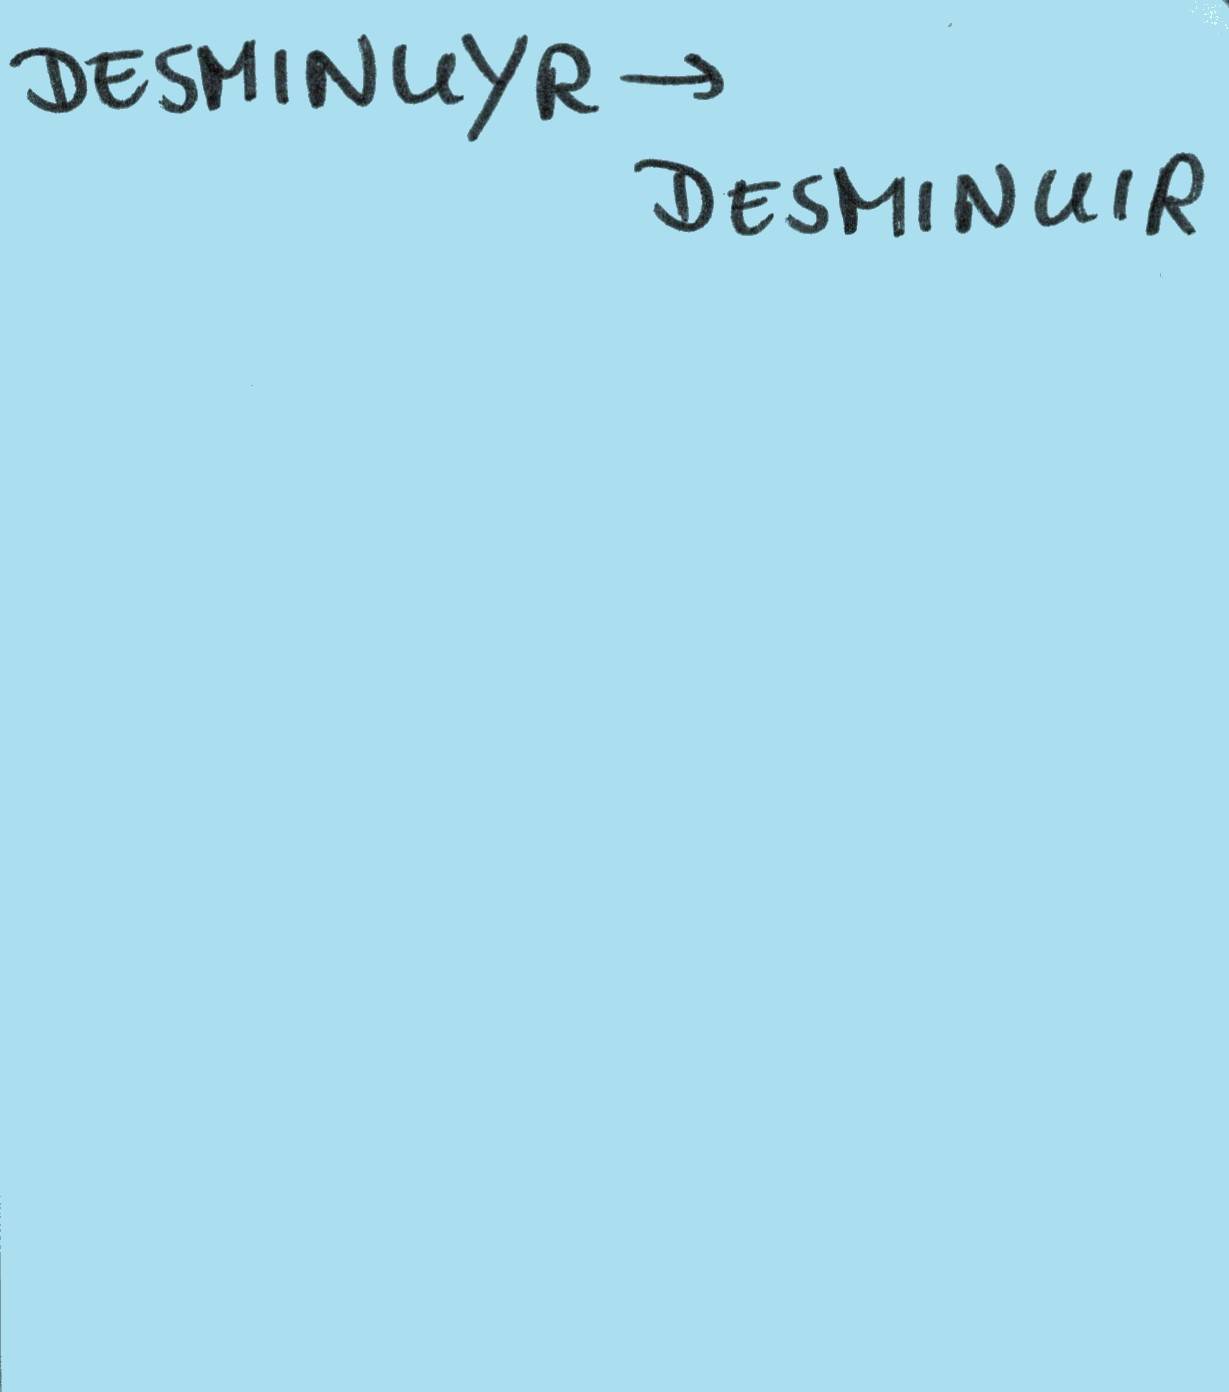 DESMINUYR →
DESMINUIR